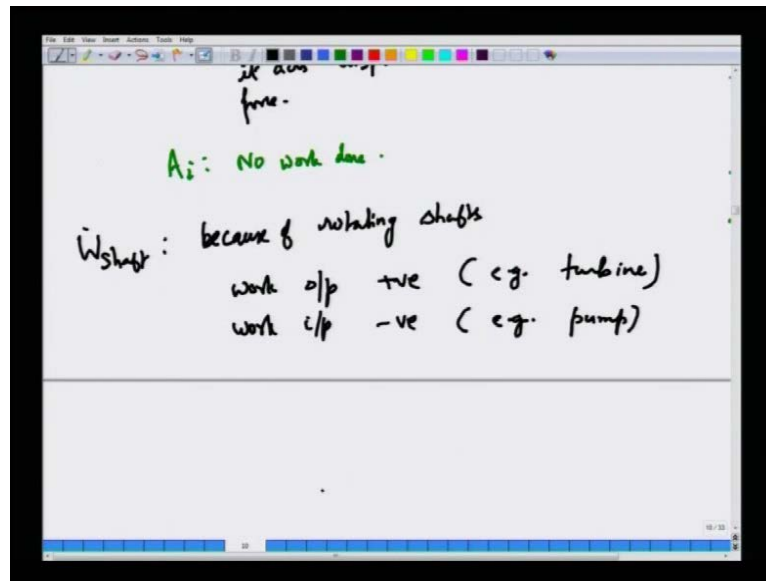 File Edit View Insert Actions Tools Help
B I
it
force.
Ai: No work done.
Ẇshaft: because of rotating shafts
work o/p +ve (e.g. turbine)
work i/p -ve (e.g. pump)
10/33
10